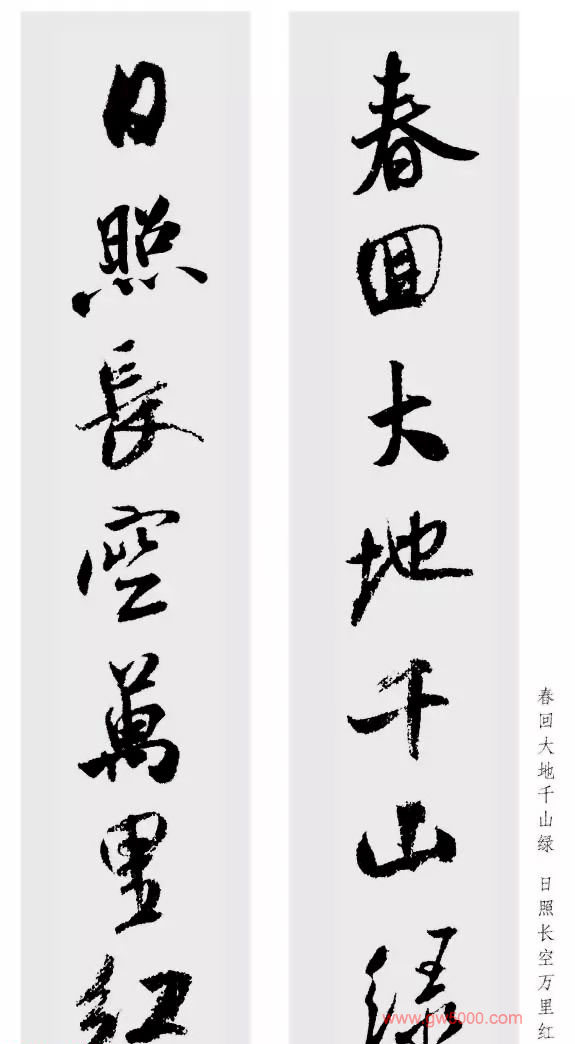 春回大地千山绿
日照長空萬里红
春回大地千山绿 日照长空万里红
www.gw5000.com